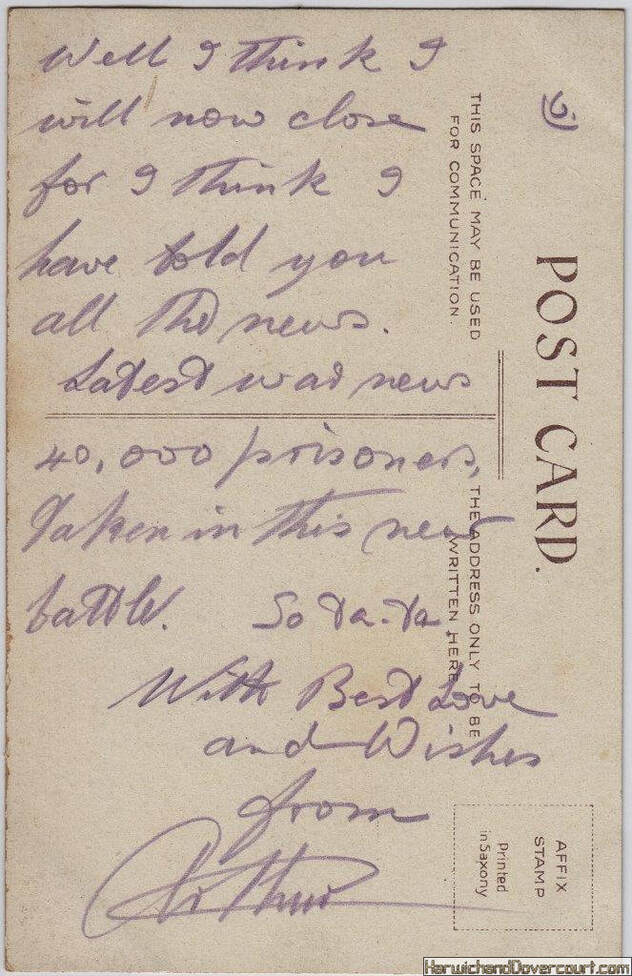 Well I think I
will now close
for I think I
have told you
all the news.
Latest war news
40,000 prisoners,
Taken in this new
battle. So Ta-Ta.
With Best Love
and Wishes
from
Arthur
THIS SPACE MAY BE USED
FOR COMMUNICATION.
POST CARD.
THE ADDRESS ONLY TO BE
WRITTEN HERE
AFFIX
STAMP
Printed
in Saxony
HarwichandDovercourt.com